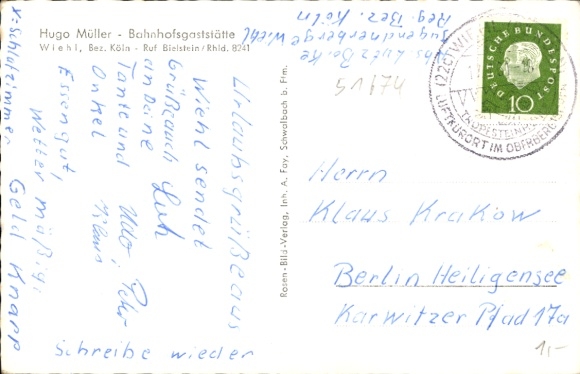 Hugo Müller - Bahnhofsgaststätte
Wiehl, Bez. Köln - Ruf Bielstein/Rhld. 8241
Urlaubsgrüße aus
Wiehl sendet
Grüße auch
an Deine
Tante und
Onkel
Udo, Peter
Klaus
Essen gut,
Wetter mäßig,
Geld knapp
Schreibe wieder
Rosen-Bild-Verlag, Inh. A. Fay, Schwalbach b. Ffm.
Jugendherberge Wiehl
Reg. Bez. Köln
51674
DEUTSCHE BUNDESPOST
10
(22c) WIEHL
TROPFSTEINHÖHLE
LUFTKURORT IM OBERBERG
Herrn
Klaus Krakow
Berlin Heiligensee
Karwitzer Pfad 17a
1,-